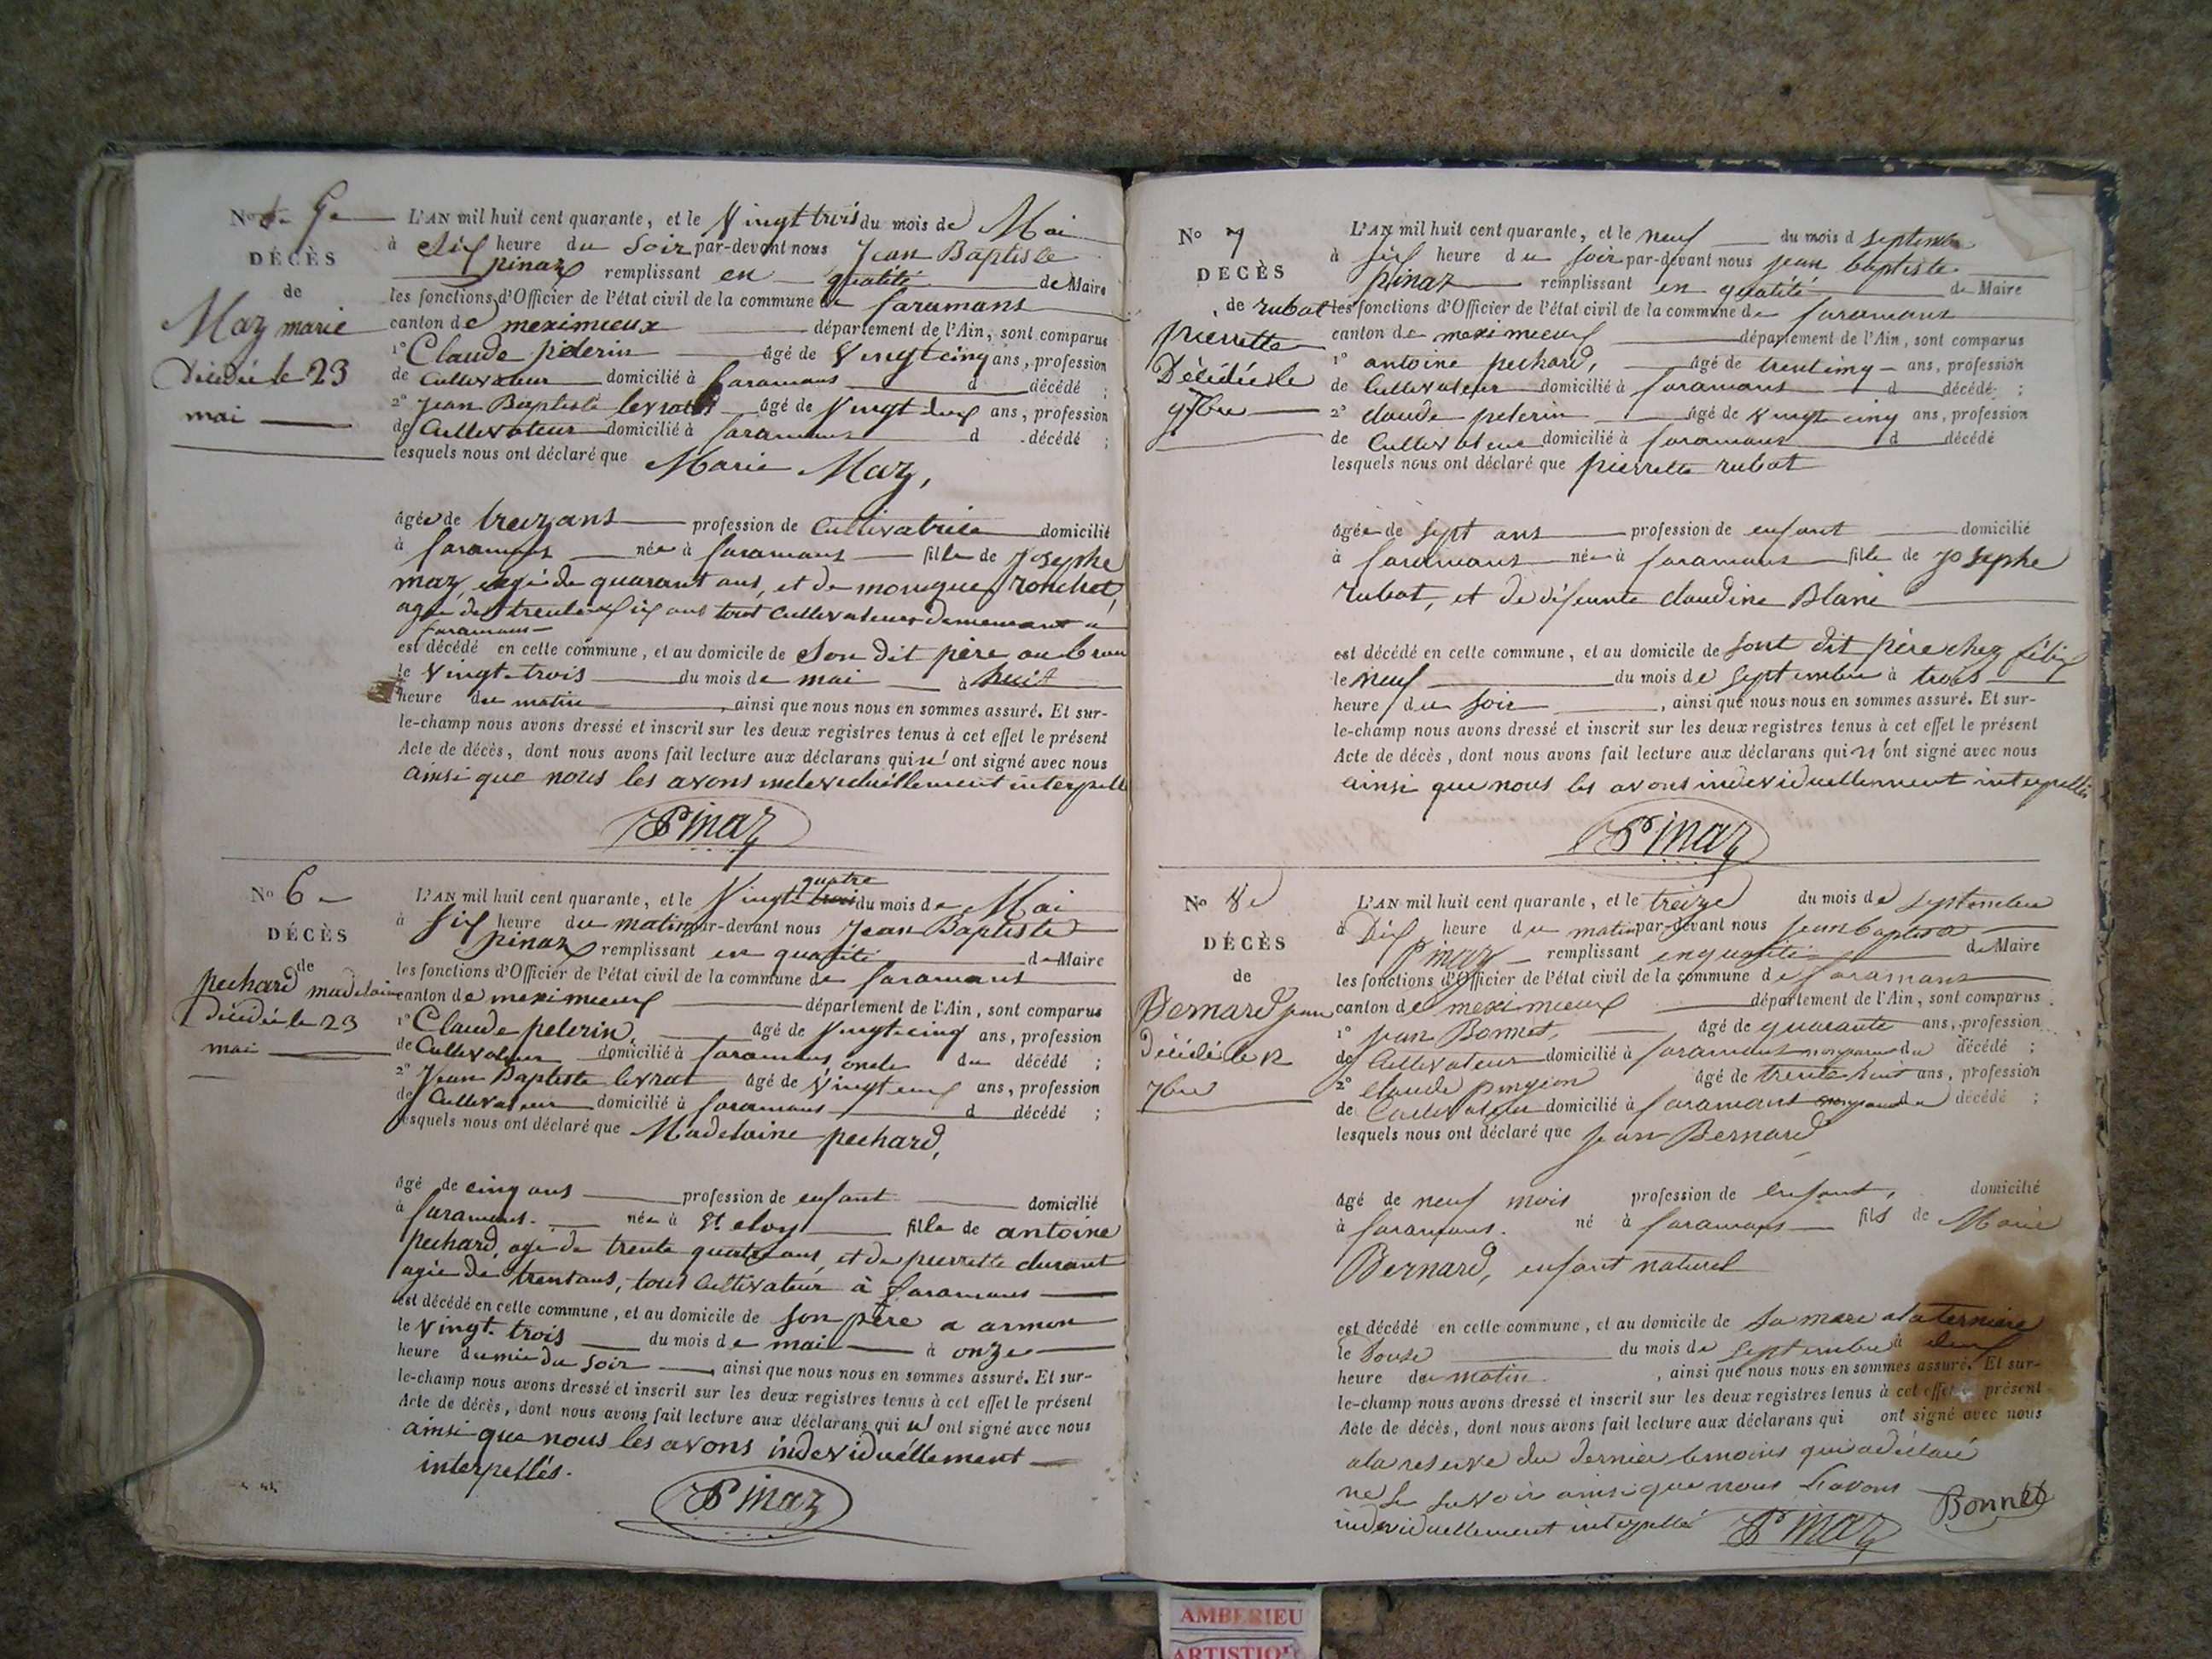 No 5
DÉCÈS
de
Maz marie
Décédée le 23
mai
L'AN mil huit cent quarante, et le Vingt trois du mois de Mai
à Six heure du Soir par-devant nous Jean Baptiste
pinaz remplissant en qualité de Maire
les fonctions d'Officier de l'état civil de la commune de faramans
canton de meximieux département de l'Ain, sont comparus
1° Claude pelerin âgé de Vingt cinq ans, profession
de Cultivateur domicilié à faramans d décédé ;
2° Jean Baptiste levrat âgé de Vingt deux ans, profession
de Cultivateur domicilié à faramans d décédé ;
lesquels nous ont déclaré que Marie Maz,
âgée de treizans profession de Cultivatrice domicilié
à faramans née à faramans fille de Josephe
maz, agé de quarant ans, et de monique ronchet,
agée de trente six ans tout Cultivateurs demeurant a
faramans
est décédé en cette commune, et au domicile de Son dit père au
le Vingt-trois du mois de mai à huit
heure du matin, ainsi que nous nous en sommes assuré. Et sur-
le-champ nous avons dressé et inscrit sur les deux registres tenus à cet effet le présent
Acte de décès, dont nous avons fait lecture aux déclarans qui n'ont signé avec nous
ainsi que nous les avons individuellement interpellé
Pinaz
No 6
DÉCÈS
de
pechard madelaine
Décédée le 23
mai
L'AN mil huit cent quarante, et le Vingt quatre du mois de Mai
à Six heure du matin par-devant nous Jean Baptiste
pinaz remplissant en qualité de Maire
les fonctions d'Officier de l'état civil de la commune de faramans
canton de meximieux département de l'Ain, sont comparus
1° Claude pelerin, âgé de Vingt-cinq ans, profession
de Cultivateur domicilié à faramans, oncle du décédé ;
2° Jean Baptiste levrat âgé de Vingt deux ans, profession
de Cultivateur domicilié à faramans d décédé ;
lesquels nous ont déclaré que Madelaine pechard,
âgé de cinq ans profession de enfant domicilié
à faramans. née à St eloy fille de antoine
pechard, agé de trente quatre ans, et de pierrette durant
agée de trentans, tous Cultivateur à faramans
est décédé en cette commune, et au domicile de son père a armon
le Vingt-trois du mois de mai à onze
heure dumie du soir, ainsi que nous nous en sommes assuré. Et sur-
le-champ nous avons dressé et inscrit sur les deux registres tenus à cet effet le présent
Acte de décès, dont nous avons fait lecture aux déclarans qui n'ont signé avec nous
ainsi que nous les avons individuellement
interpellés.
Pinaz
No 7
DÉCÈS
de rubat
pierrette
Décédée le
9 7bre
L'AN mil huit cent quarante, et le neuf du mois d septembre
à six heure du soir par-devant nous jean baptiste
pinaz remplissant en qualité de Maire
les fonctions d'Officier de l'état civil de la commune de faramans
canton de meximieux département de l'Ain, sont comparus
1° antoine pechard, âgé de trentcinq ans, profession
de Cultivateur domicilié à faramans d décédé ;
2° claude pelerin âgé de Vingt cinq ans, profession
de Cultivateur domicilié à faramans d décédé
lesquels nous ont déclaré que pierrette rubat
âgée de sept ans profession de enfant domicilié
à faramans née à faramans fille de josephe
rubat, et de défeunte claudine Blanc
est décédé en cette commune, et au domicile de sont dit père chez
le neuf du mois de Septembre à trois
heure du soir, ainsi que nous nous en sommes assuré. Et sur-
le-champ nous avons dressé et inscrit sur les deux registres tenus à cet effet le présent
Acte de décès, dont nous avons fait lecture aux déclarans qui n'ont signé avec nous
ainsi que nous les avons individuellement interpellés
Pinaz
No 8
DÉCÈS
de
Bernard jean
Décédé le 12
7bre
L'AN mil huit cent quarante, et le treize du mois de septembre
à Dix heure du matin par-devant nous jean baptiste
Pinaz remplissant en qualité de Maire
les fonctions d'Officier de l'état civil de la commune de faramans
canton de meximieux département de l'Ain, sont comparus
1° jean Bonnet, âgé de quarante ans, profession
de Cultivateur domicilié à faramans du décédé ;
2° claude pingeon âgé de trente huit ans, profession
de Cultivateur domicilié à faramans du décédé ;
lesquels nous ont déclaré que jean Bernard,
âgé de neuf mois profession de Enfant, domicilié
à faramans. né à faramans fils de Marie
Bernard, enfant naturel
est décédé en cette commune, et au domicile de sa mère
le Douse du mois de septembre à deux
heure du matin, ainsi que nous nous en sommes assuré. Et sur-
le-champ nous avons dressé et inscrit sur les deux registres tenus à cet effet le présent
Acte de décès, dont nous avons fait lecture aux déclarans qui ont signé avec nous
ala reserve du dernier temoins qui adéclaré
ne le savoir ainsi que nous l'avons
individuellement interpellé
Pinaz
Bonnet
AMBERIEU
ARTISTIQ